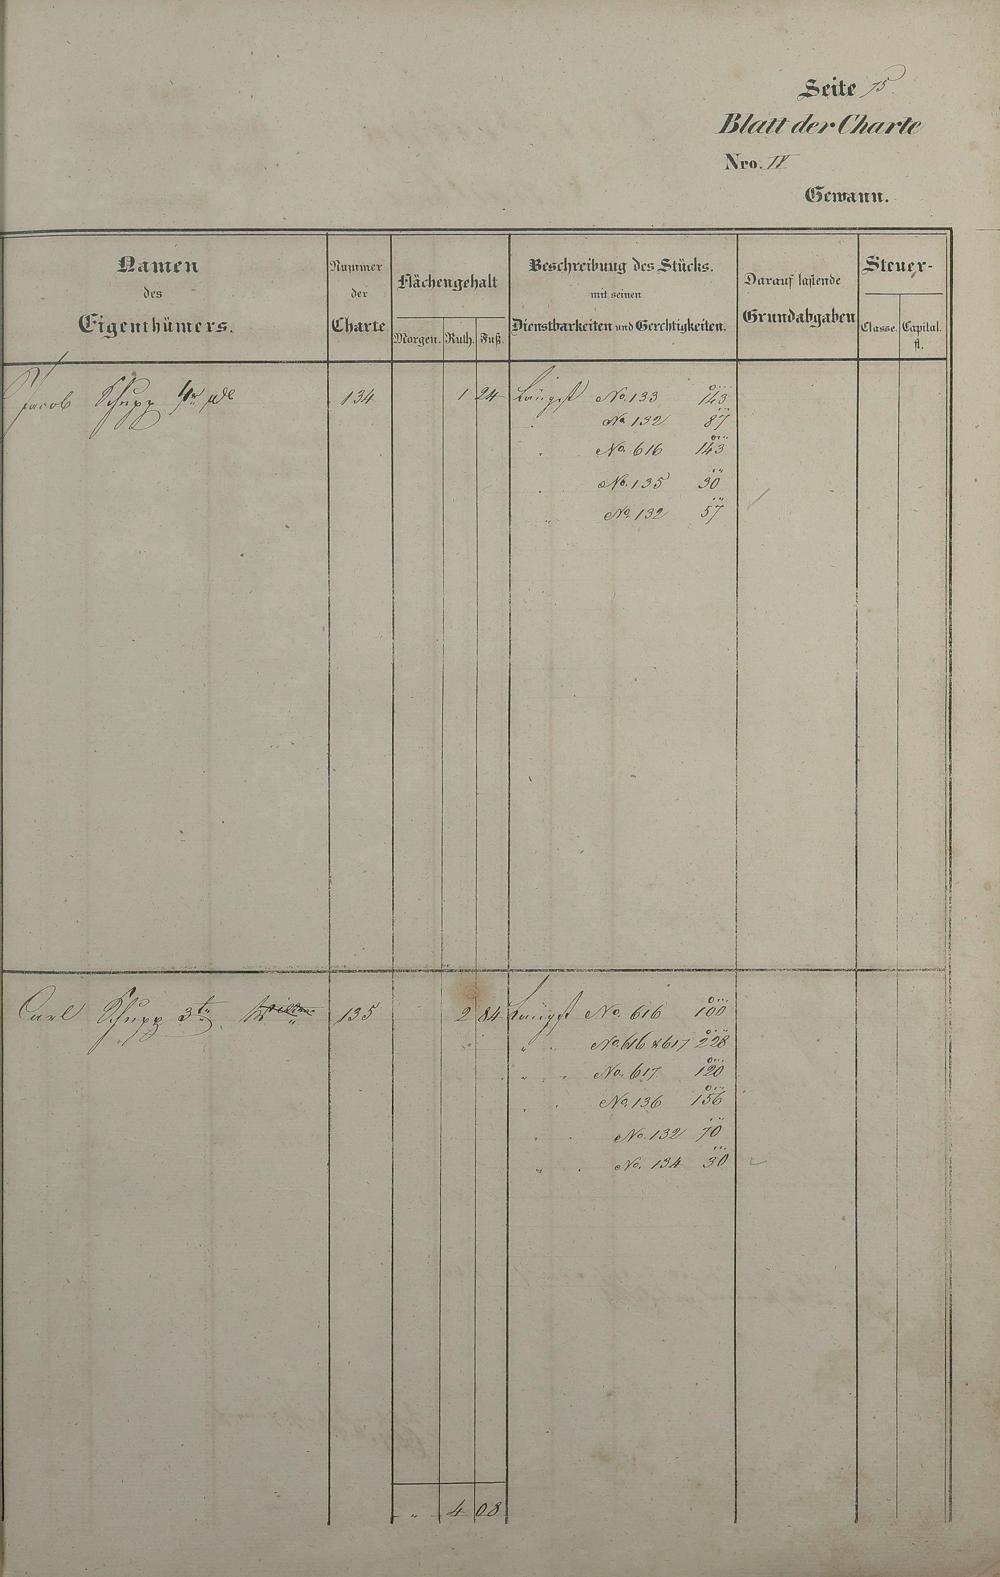 Seite 75
Blatt der Charte
Nro. IV
Gewann.
Namen des Eigenthümers.
Nummer der Charte
Flächengehalt
Morgen. Ruth. Fuß.
Beschreibung des Stücks. mit seinen Dienstbarkeiten und Gerechtigkeiten.
Darauf lastende Grundabgaben
Steuer-
Classe. Capital. fl.
Jacob Schupp 4r 134 1 24 Längst No. 133 143
No. 132 87
" No. 616 143
" No. 135 30
" No. 132 57
Carl Schupp 3tr 135 2 84 Längst No. 616 100
" " No. 616 & 617 228
" " No. 617 120
" " No. 136 156
" " No. 132 70
" " No. 134 30
" 4 08